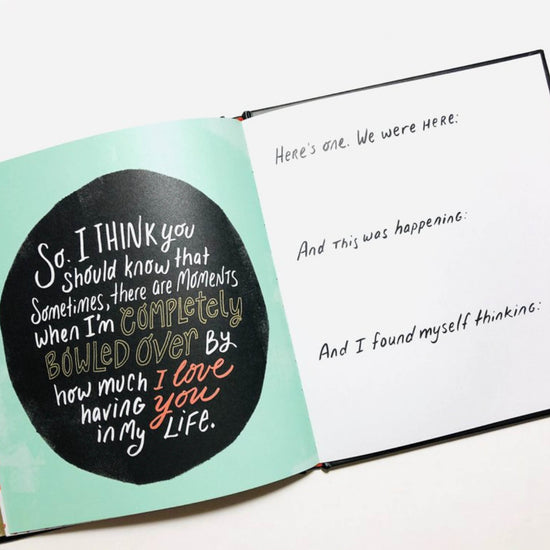 So. I THINK you
should know that
Sometimes, there are MOMENTS
when I'm COMPLETELY
BOWLED OVER By
how much I love
having you
in My LIFE.
HERE'S one. We were HERE:
And THIS was happening:
And I found myself thinking: